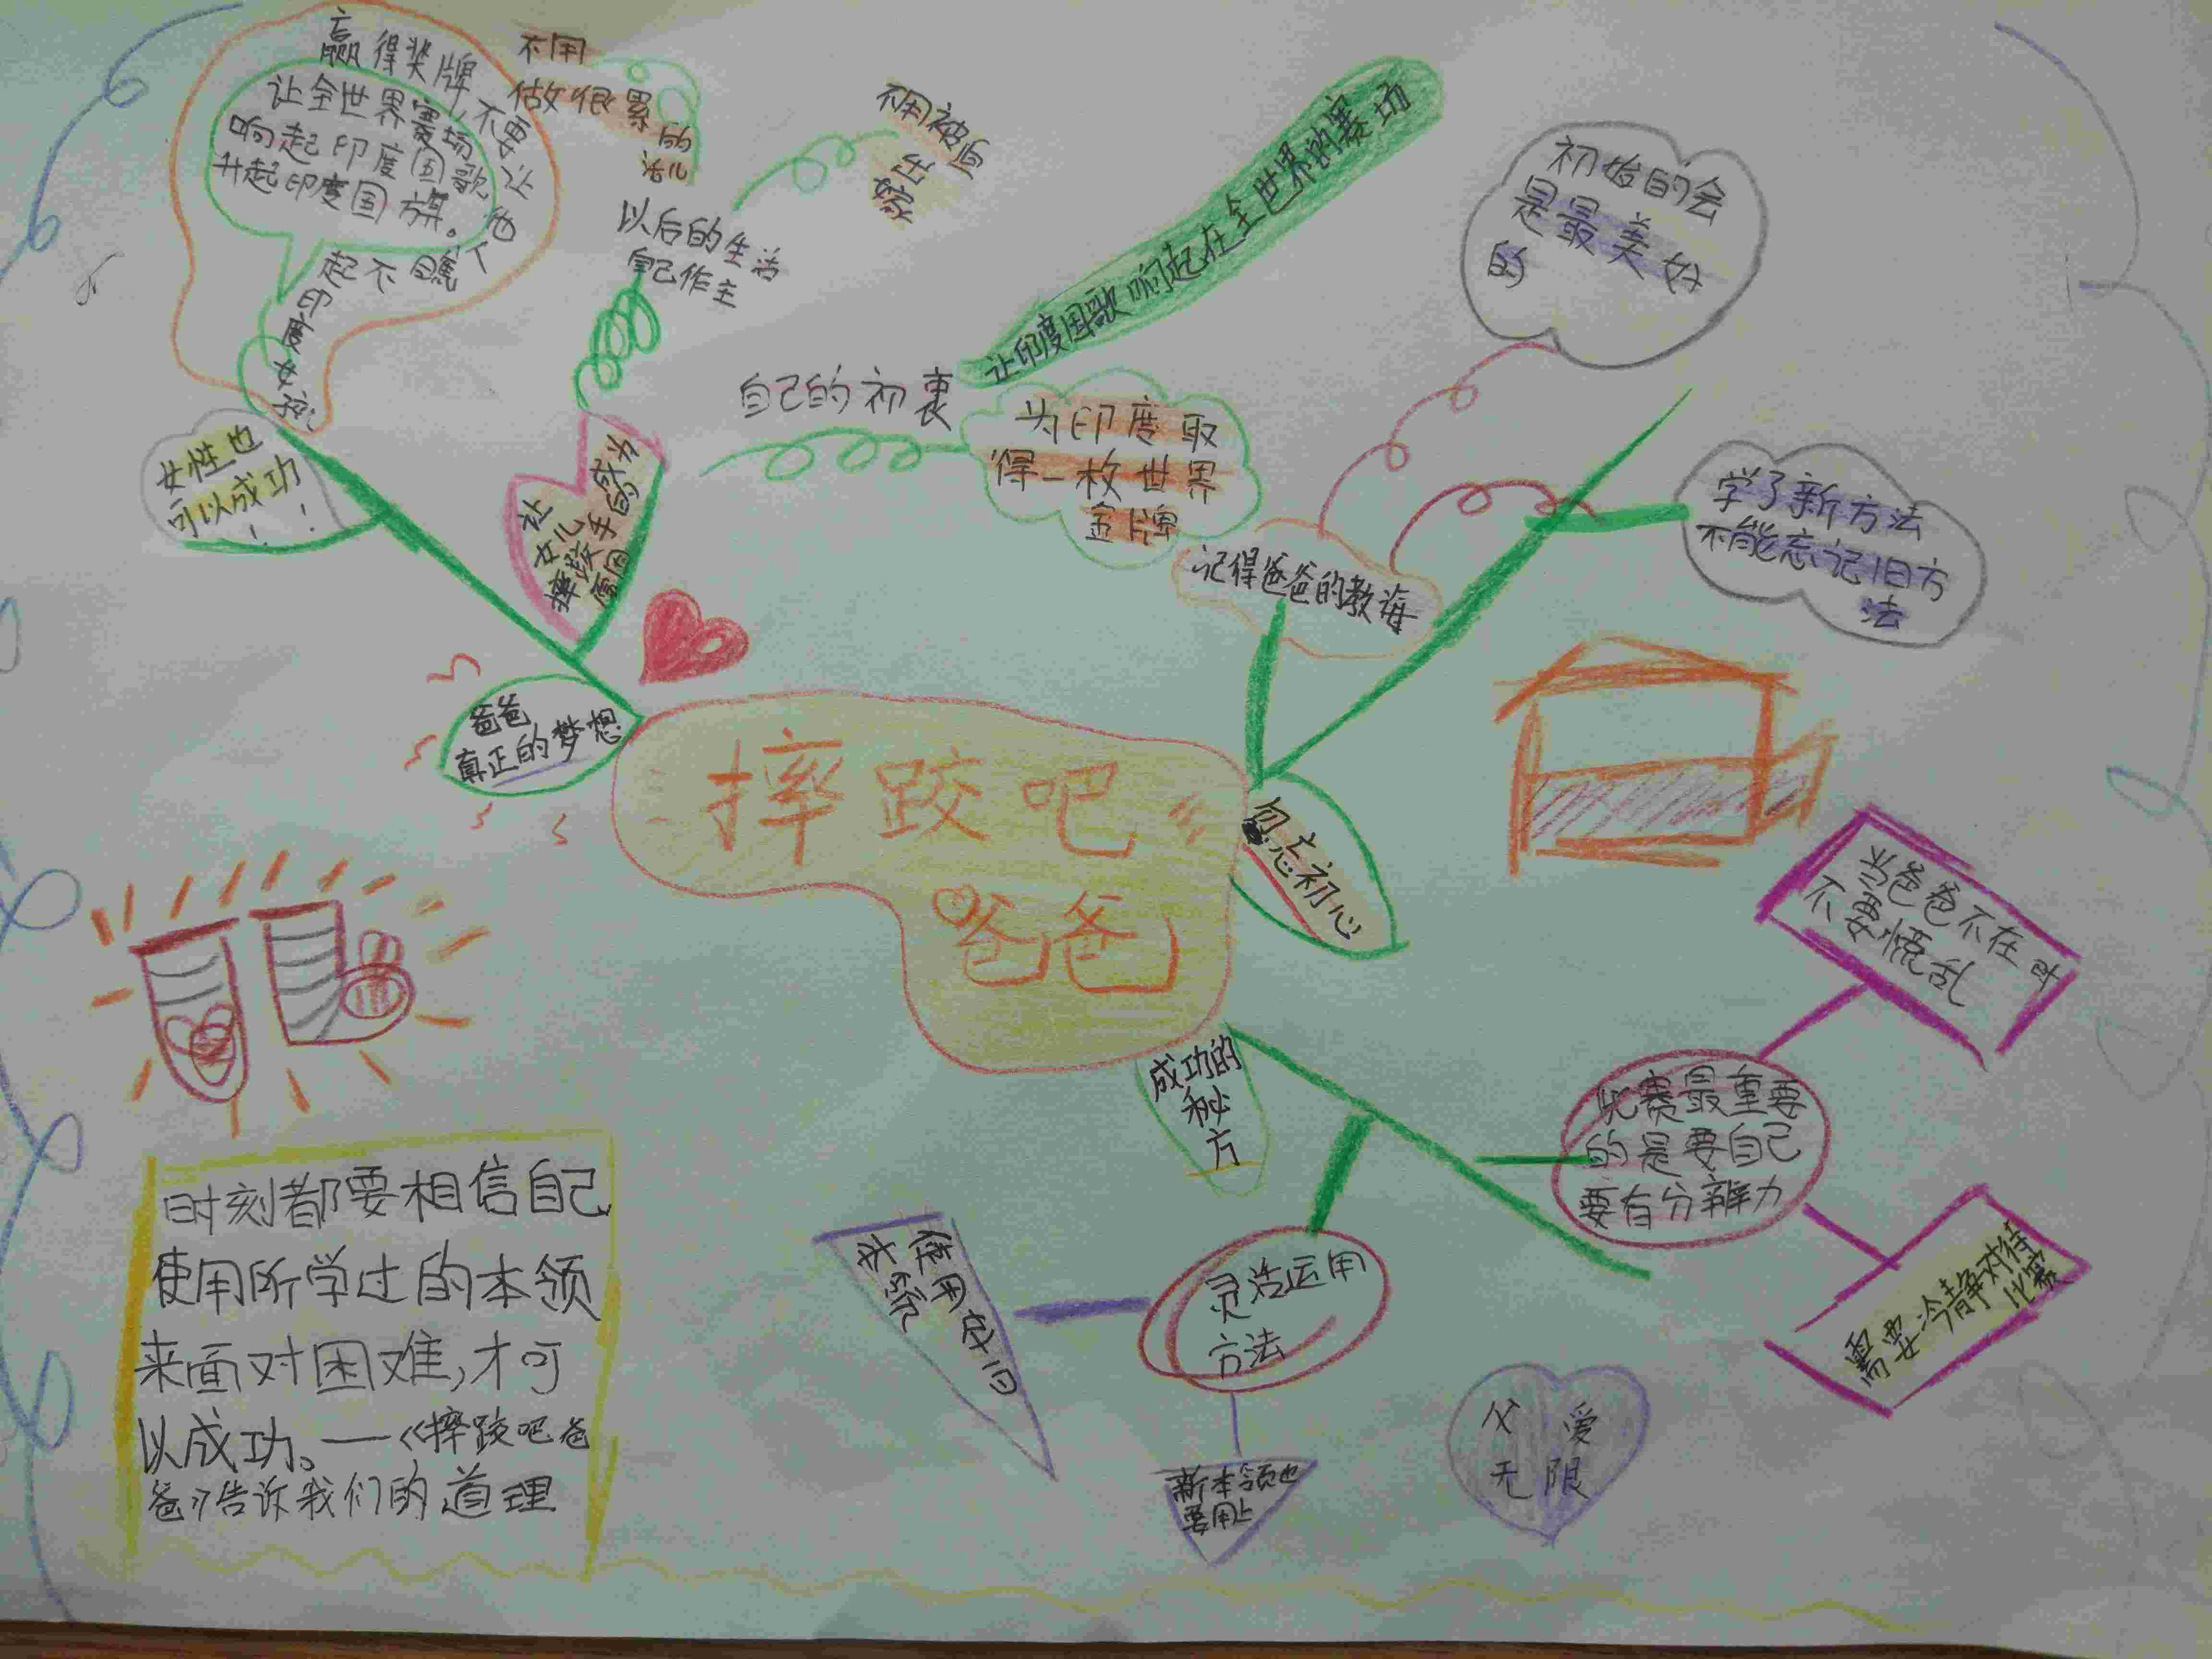 赢得奖牌,不要让他人
瞧不起
印度女孩
让全世界赛场
响起印度国歌
升起印度国旗。
女性也
可以成功
！！
不用
做很累
的
活儿
以后的生活
自己作主
不用被迫
出嫁
让女儿成为
摔跤手的
原因
自己的初衷
让印度国歌响起在全世界的赛场
为印度取
得一枚世界
金牌
爸爸
真正的梦想
初始的会
是最美好
的
学了新方法
不能忘记旧方
法
记得爸爸的教诲
勿忘初心
摔跤吧
爸爸
当爸爸不在时
不要慌乱
比赛最重要
的是要自己
要有分辨力
需要冷静对待
比赛
成功的
秘方
灵活运用
方法
使用好旧
新本领也
要用上
父爱
无限
时刻都要相信自己
使用所学过的本领
来面对困难,才可
以成功。——《摔跤吧爸
爸》告诉我们的道理